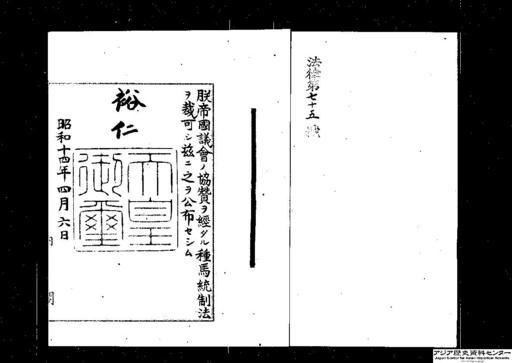 法律第七十五號
朕帝國議會ノ協贊ヲ經タル種馬統制法
ヲ裁可シ茲ニ之ヲ公布セシム
裕仁
天皇
御璽
昭和十四年四月六日
アジア歴史資料センター
Japan Center for Asian Historical Records